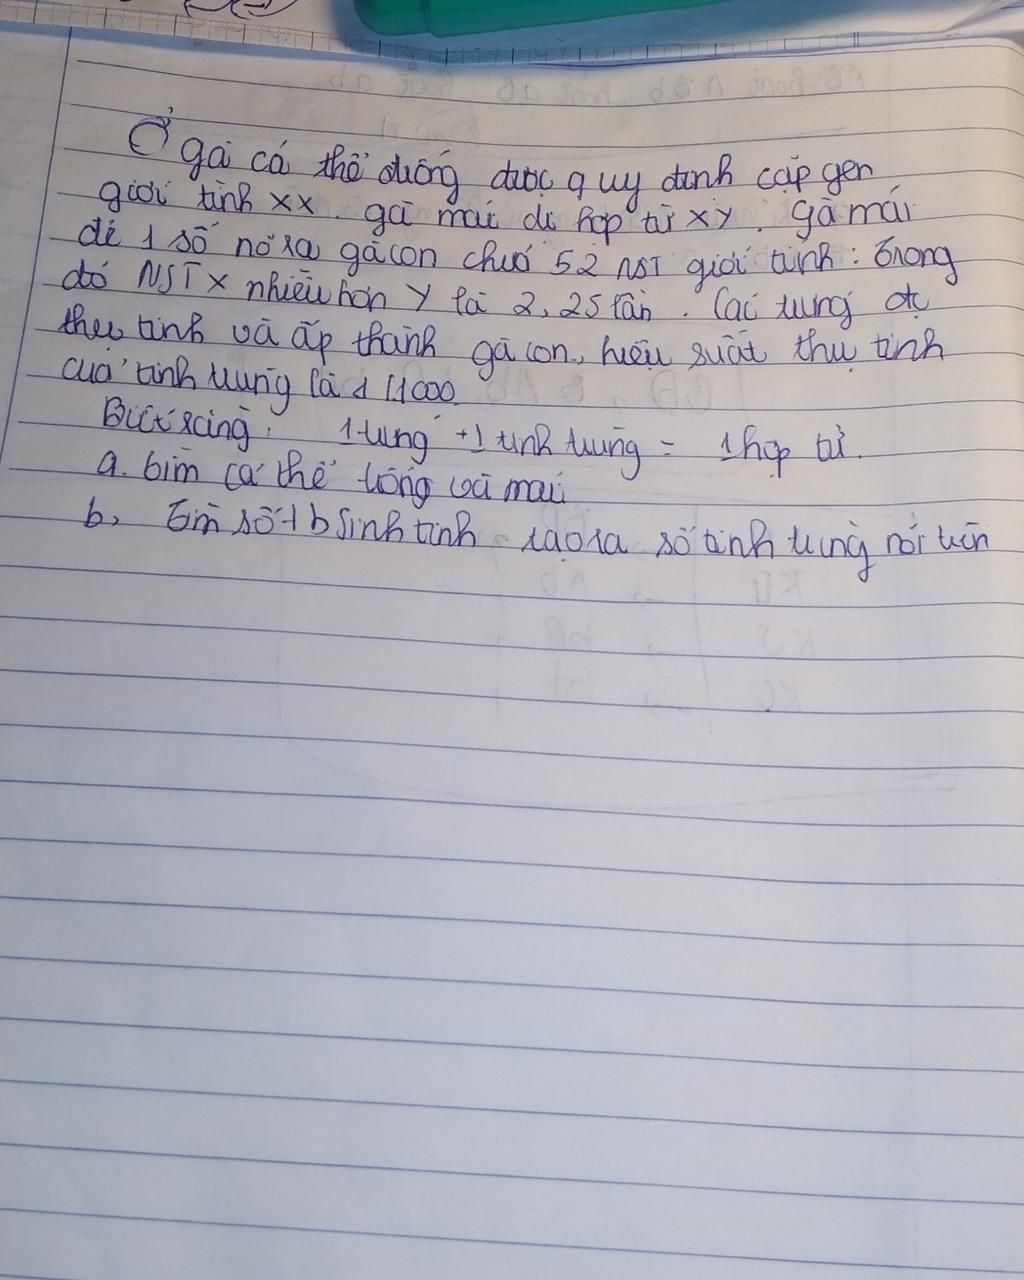 Ở gà cá thể đuống được quy định cặp gen
giới tính XX. gà mái dị hợp tử XY. Gà mái
đẻ 1 số nở ra gà con chứá 52 NST giới tính: trong
đó NST X nhiều hơn Y là 2,25 lần. Các trứng đc
thụ tinh và ấp thành gà con, hiệu suất thụ tinh
của tinh trùng là 1/1000
Biết rằng: 1 trứng + 1 tinh trùng = 1 hợp tử.
a. tìm cá thể trống và mái
b, tìm số tb sinh tinh tạo ra số tinh trùng nói trên